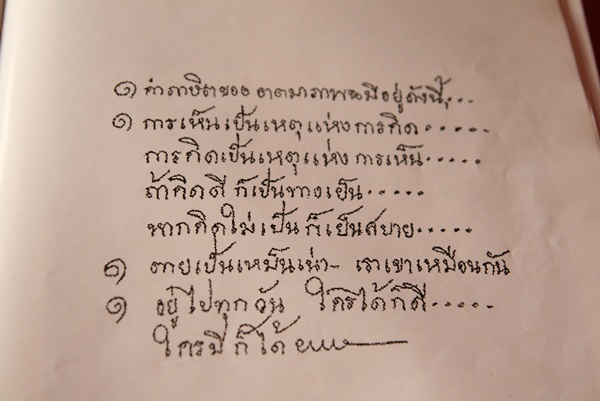 ๑ คำภาษิตของ อาตมาภาพจะมีอยู่ดังนี้,...
๑ การเห็นเป็นเหตุแห่งการคิด.....
การคิดเป็นเหตุแห่งการเห็น.....
ถ้าคิดดี ก็เป็นทางเย็น.....
หากคิดไม่เป็น ก็เป็นสบาย.....
๑ ตายเป็นเหม็นเน่า เราเขาเหมือนกัน
๑ อยู่ไปทุกวัน ใครได้ก็ดี.....
ใครมีก็ได้